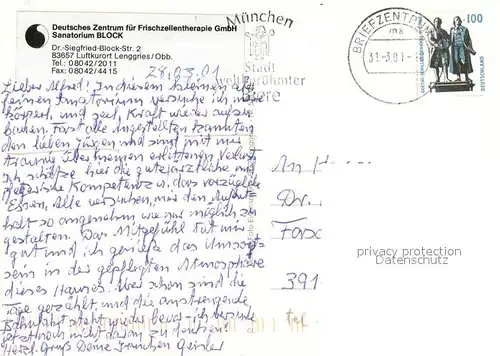 Deutsches Zentrum für Frischzellentherapie GmbH
Sanatorium BLOCK
Dr.-Siegfried-Block-Str. 2
83657 Luftkurort Lenggries/Obb.
Tel.: 08042/2011
Fax: 08042/4415
München
Stadt
weltberühmter
28.03.01
BRIEFZENTRUM
ma
31-3.01
100
DEUTSCHLAND
Lieber Alfred! In diesem kleinen aber
feinen Sanatorium versuche ich mich
körperl. und seel. Kraft wieder aufzu
bauen. Fast alle Angestellten kannten
den lieben Jürgen und sind mit mir
traurig über meinen erlittenen Verlust
Ich schätze hier die gute ärztliche und
Kompetenz u. das vorzügliche
Essen. Alle versuchen, mir den Aufent-
halt so angenehm wie nur möglich zu
gestalten. Das Mitgefühl tut mir
gut und ich genieße das Umsorgt
sein in der gepflegten Atmosphäre
dieses Hauses. Aber schon sind die
Tage gezählt und die anstrengende
Bahnfahrt steht wieder bevor - ich versuche
jetzt noch nicht daran zu denken!
Herzl. Gruß Deine Geisler
An H
Dr.
391
privacy protection
Datenschutz